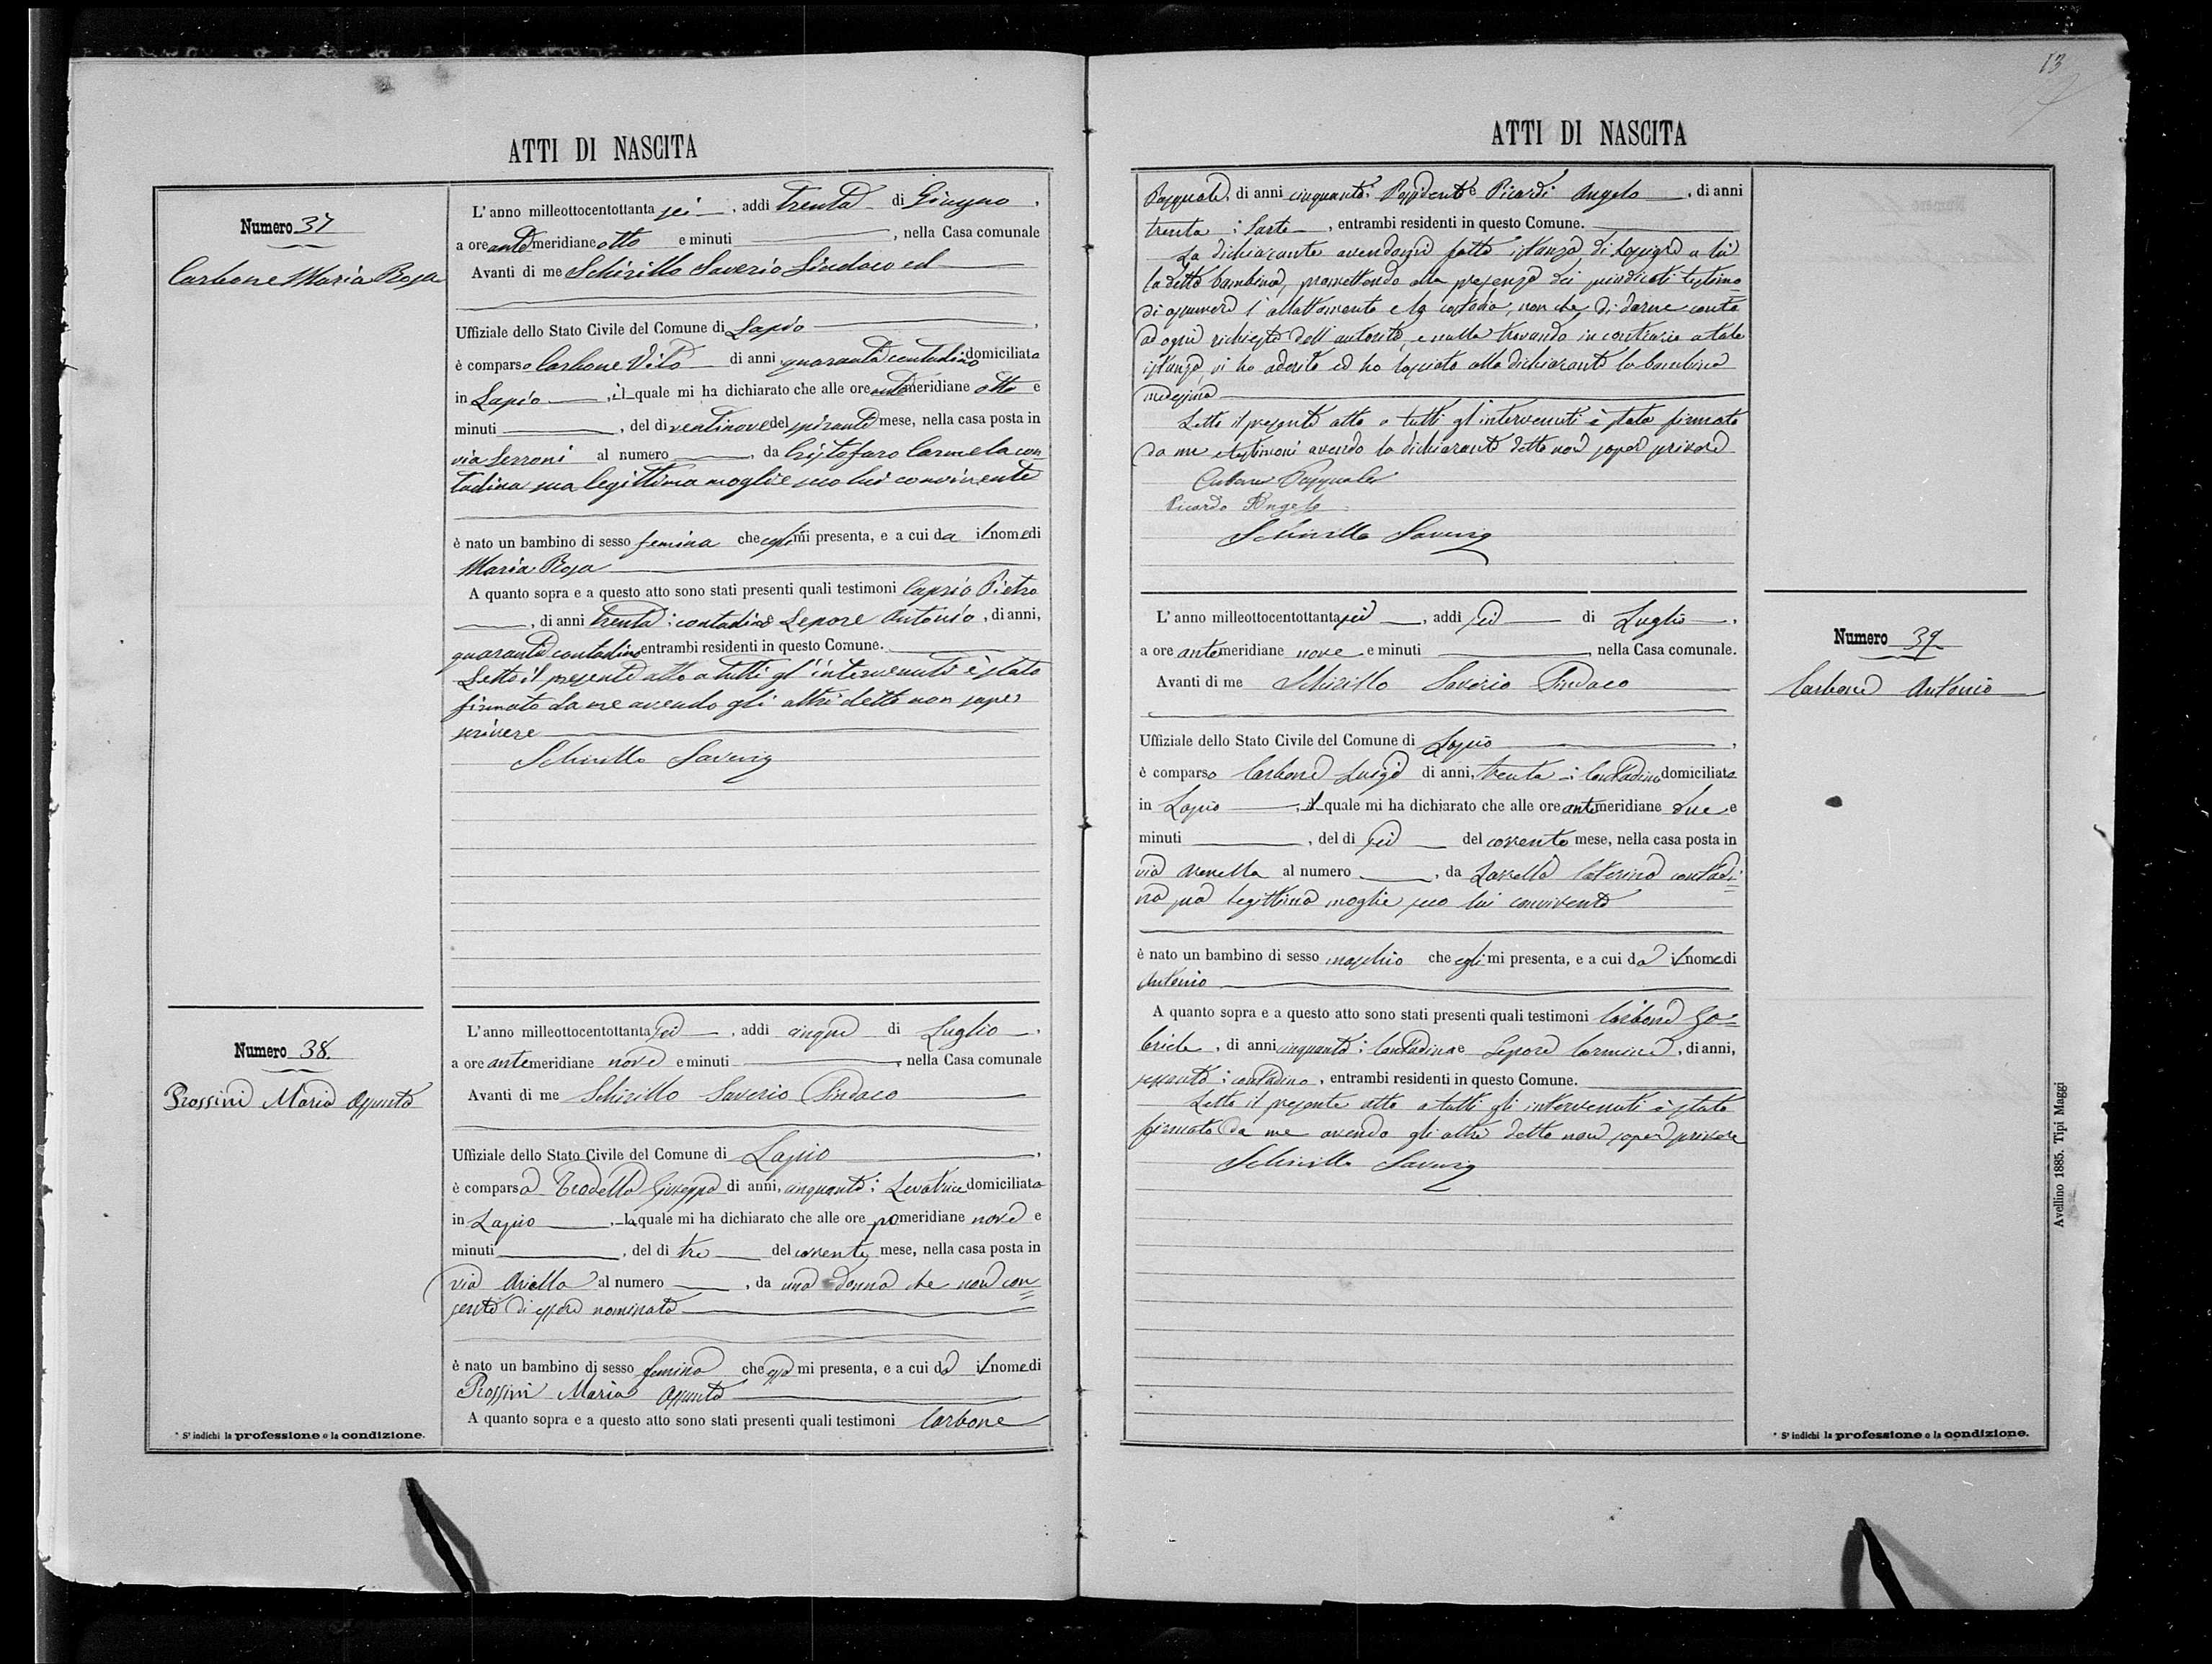 ATTI DI NASCITA
Numero 37
Carbone Maria Rosa
L'anno milleottocentottanta sei, addì trenta di Giugno,
a ore antemeridiane otto e minuti, nella Casa comunale
Avanti di me Schirillo Saverio Sindaco ed
Uffiziale dello Stato Civile del Comune di Lapio,
è comparso Carbone Vito di anni quaranta contadino domiciliato
in Lapio, il quale mi ha dichiarato che alle ore antemeridiane otto e
minuti, del dì ventinove del spirante mese, nella casa posta in
via Serroni al numero, da Cristofaro Carmela con-
tadina sua legittima moglie seco lui convivente
è nato un bambino di sesso femina che egli mi presenta, e a cui da il nome di
Maria Rosa
A quanto sopra e a questo atto sono stati presenti quali testimoni Caprio Pietro
, di anni trenta: contadino e Lepore Antonio, di anni,
quaranta contadino entrambi residenti in questo Comune.
Letto il presente atto a tutti gl'intervenuti è stato
firmato da me avendo gli altri detto non saper
scrivere
Schirillo Saverio
Numero 38.
Rossini Maria Assunta
L'anno milleottocentottanta sei, addì cinque di Luglio,
a ore antemeridiane nove e minuti, nella Casa comunale
Avanti di me Schirillo Saverio Sindaco
Uffiziale dello Stato Civile del Comune di Lapio,
è comparsa Giuseppa di anni, cinquanta: Levatrice domiciliata
in Lapio, la quale mi ha dichiarato che alle ore pomeridiane nove e
minuti, del dì tre del corrente mese, nella casa posta in
via Ariella al numero, da una donna che non con=
sente di essere nominata
è nato un bambino di sesso femina che essa mi presenta, e a cui da il nome di
Rossini Maria Assunta
A quanto sopra e a questo atto sono stati presenti quali testimoni Carbone
* S'indichi la professione o la condizione.
13
ATTI DI NASCITA
Pasquale, di anni cinquanta: Possidente e Picardi Angelo, di anni
trenta: Sarto, entrambi residenti in questo Comune.
La dichiarante avendomi fatto istanza di lasciare a lei
la detta bambina, promettendo alla presenza dei testimo=
di assumere l'allattamento e la custodia, non che di darne conto
ad ogni richiesta dell'autorità, e nulla trovando in contrario a tale
istanza, vi ho aderito ed ho lasciato alla dichiarante la bambina
medesima
Letto il presente atto a tutti gl'intervenuti è stato firmato
da me e testimoni avendo la dichiarante detto non saper scrivere
Carbone Pasquale
Picardo Angelo
Schirillo Saverio
Numero 39
Carbone Antonio
L'anno milleottocentottanta sei, addì sei di Luglio,
a ore antemeridiane nove e minuti, nella Casa comunale.
Avanti di me Schirillo Saverio Sindaco
Uffiziale dello Stato Civile del Comune di Lapio,
è comparso Carbone Luigi di anni, trenta: Contadino domiciliato
in Lapio, il quale mi ha dichiarato che alle ore antemeridiane due e
minuti, del dì sei del corrente mese, nella casa posta in
via al numero, da Caterina contadi=
na sua legittima moglie seco lui convivente
è nato un bambino di sesso maschio che egli mi presenta, e a cui da il nome di
Antonio
A quanto sopra e a questo atto sono stati presenti quali testimoni Carbone Ga=
briele, di anni cinquanta: Contadino e Lepore Carmine, di anni,
sessanta: contadino, entrambi residenti in questo Comune.
Letto il presente atto a tutti gli intervenuti è stato
firmato da me avendo gli altri detto non saper scrivere
Schirillo Saverio
* S'indichi la professione o la condizione.
Avellino 1885. Tipi Maggi